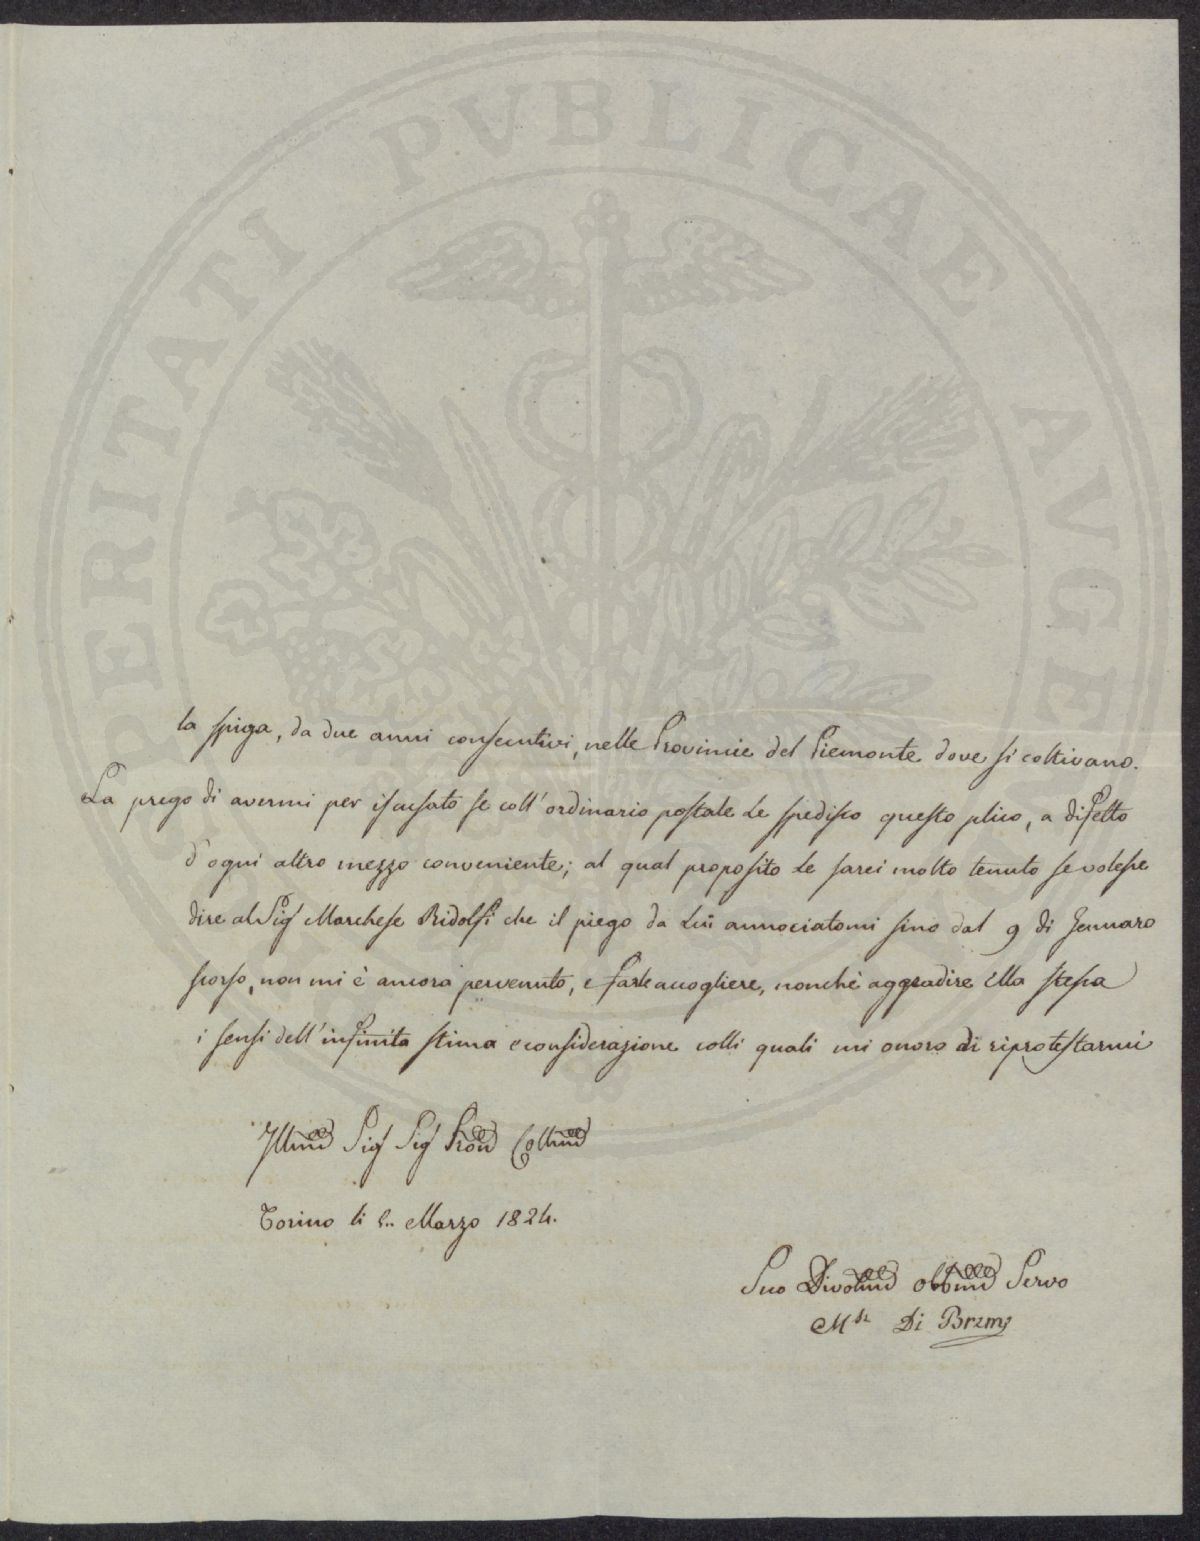 PROSPERITATI PVBLICAE AVGENDAE
la spiga, da due anni consecutivi, nelle Provincie del Piemonte dove si coltivano.
La prego di avermi per iscusato se coll'ordinario postale Le spedisco questo plico, a difetto
d'ogni altro mezzo conveniente; al qual proposito Le sarei molto tenuto se volesse
dire al Sig Marchese Ridolfi che il piego da Lui annociatomi sino dal 9 di Gennaro
scorso, non mi è ancora pervenuto, e farle accogliere, nonchè aggradire Ella stessa
i sensi dell'infinita stima e considerazione colli quali mi onoro di riprotestarmi
Illmo Sig Sig Pron Collmo
Torino li Marzo 1824.
Suo Divotmo obbmo Servo
Mse Di Breme